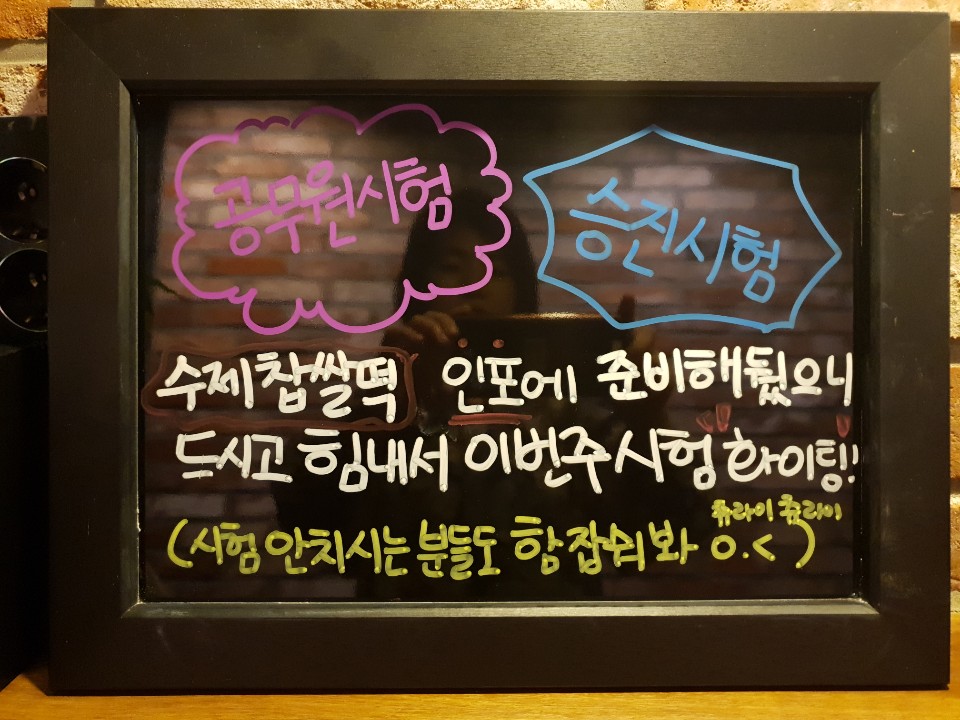 공무원시험
승진시험
수제찹쌀떡 인포에 준비해뒀으니
드시고 힘내서 이번주 시험 화이팅!!
츄라이 츄라이
(시험 안치시는 분들도 함 잡숴봐 ㅇ.<)